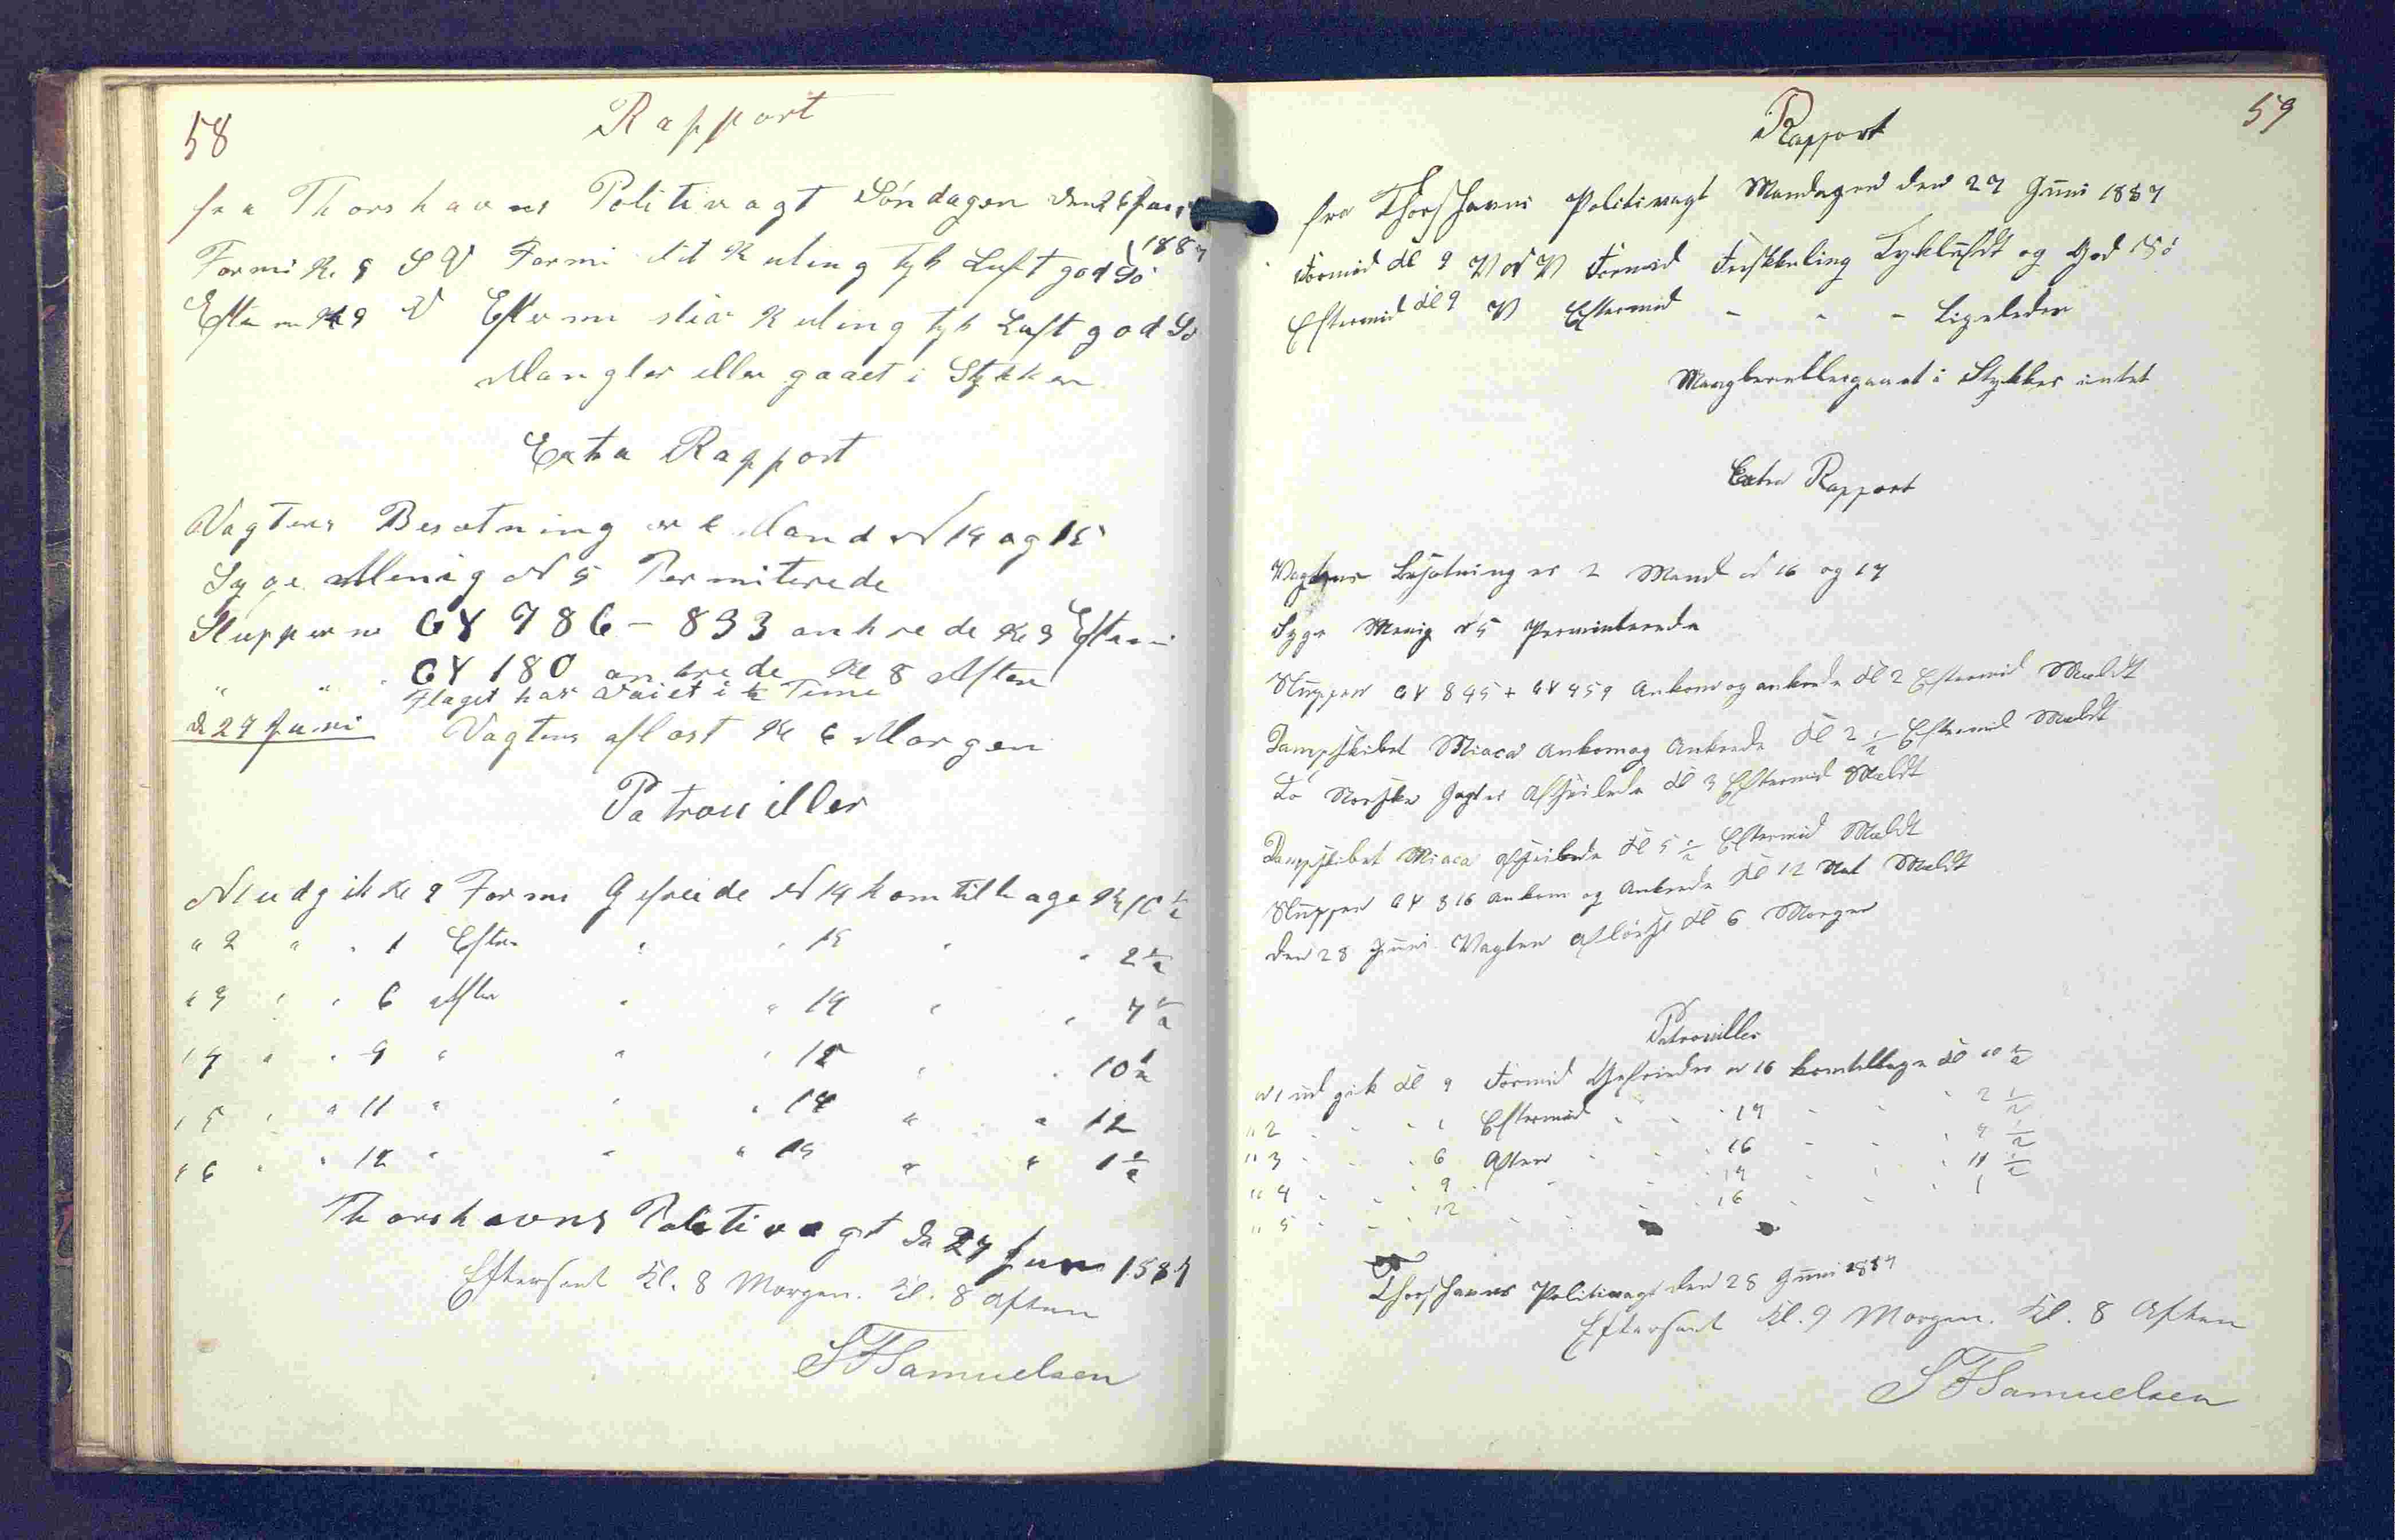 58
Rapport
fra Thorshavns Politivagt Söndagen den 26 Juni
1887
Formi Kl 9 SV Formi lit Kuling tyk Luft god Sö
Efterm Kl 9 V Efterm stiv Kuling tyk Luft god Sö
Mangler eller gaaet i Stykker
Exta Rapport
Vagtens Besætning er 2 Mand N 14 og 15
Syge Menig N 5 Permiterede
Slupperne GY 786 - 833 ankrede Kl 9 Efterm
" " GY 180 ankrede Kl 8 Aften
Flaget har vaiet i Time
d 27 Juni Vagtens aflöst Kl 6 Morgen
Patrouiller
N 1 udgik Kl 9 Formi Gefreide N 14 kom tilbage Kl 10 1/2
" 2 " " 1 Efter " " 15 " " 2 1/2
" 3 " " 6 Aften " " 14 " " 7 1/2
" 4 " " 9 " " " 15 " " 10 1/2
" 5 " " 11 " " " 14 " " 12
" 6 " " 12 " " " 15 " " 1 1/2
Thorshavns Politivagt d 27 Juni 1887
Efterseet Kl. 8 Morgen. Kl. 8 Aften
SFSamuelsen
59
Rapport
fra Thorshavns Politivagt Mandagen den 27 Juni 1887
Formid Kl 9 V Formid Friskkuling Tykluft og God Sö
Eftermid Kl 9 V Eftermid - - - Ligeledes
Mangler eller gaaet i Stykker intet
Extra Rapport
Vagtens Besætning er 2 Mand N 16 og 17
Syge Menig N 5 Perminterede
Sluppen GY 895 + GY 459 Ankom og ankrede Kl 2 Eftermid Meldt
Dampskibet Miaca ankom og Ankrede Kl 2 1/2 Eftermid Meldt
To Norske Jagter Afseilede Kl 3 Eftermid Meldt
Dampskibet Miaca afseilede Kl 5 1/2 Eftermid Meldt
Sluppen GY 816 ankom og Ankrede Kl 12 Nat Meldt
den 28 Juni Vagten aflöses Kl 6 Morgen
Patrouiller
N 1 ud gik Kl 9 Formid Gefreider N 16 kom tilbage Kl 10 1/2
" 2 - - - 1 Eftermid - - - 17 - - - 2 1/2
" 3 - - - 6 Aften - - - 16 - - - 7 1/2
" 4 - - - 9 - - - 17 - - - 11 1/2
" 5 - - - 12 - - - 16 - - - 1
Thorshavns Politivagt den 28 Juni 1887
Efterseet Kl. 9 Morgen. Kl. 8 Aften
SFSamuelsen